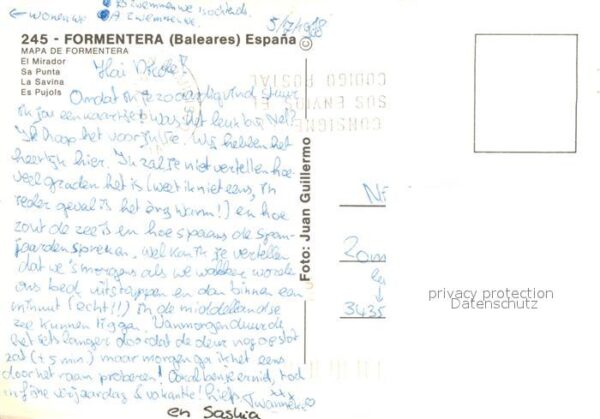 zwemmen we 's ochtends.
← wonen we
5/7/1988
245 - FORMENTERA (Baleares) España
MAPA DE FORMENTERA
El Mirador
Sa Punta
La Savina
Es Pujols
©
Foto: Juan Guillermo
CONSIGNE
SUS ENVIOS EL
CODIGO POSTAL
Hai Nicole!
Omdat ik je zo aardig vind stuur
ik jou een kaartje! Was het leuk bij Nel?
Ik hoop het voor jullie. Wij hebben het
heerlijk hier. Ik zal je niet vertellen hoe-
veel graden het is (weet ik niet eens, in
ieder geval is het erg warm!) en hoe
zout de zee is en hoe spaans de Span-
jaarden spreken, wel kan ik je vertellen
dat we 's morgens als we wakker worden
ons bed uitstappen en dan binnen een
minuut (echt!!) in de middellandse
zee kunnen liggen. Vanmorgen duurde
het iets langer doordat de deur nog op slot
zat (± 5 min) maar morgen ga ik het eens
door het raam proberen!
fijne verjaardag & vakantie! liefs, Janneke
en Saskia
Ni
3435
privacy protection
Datenschutz